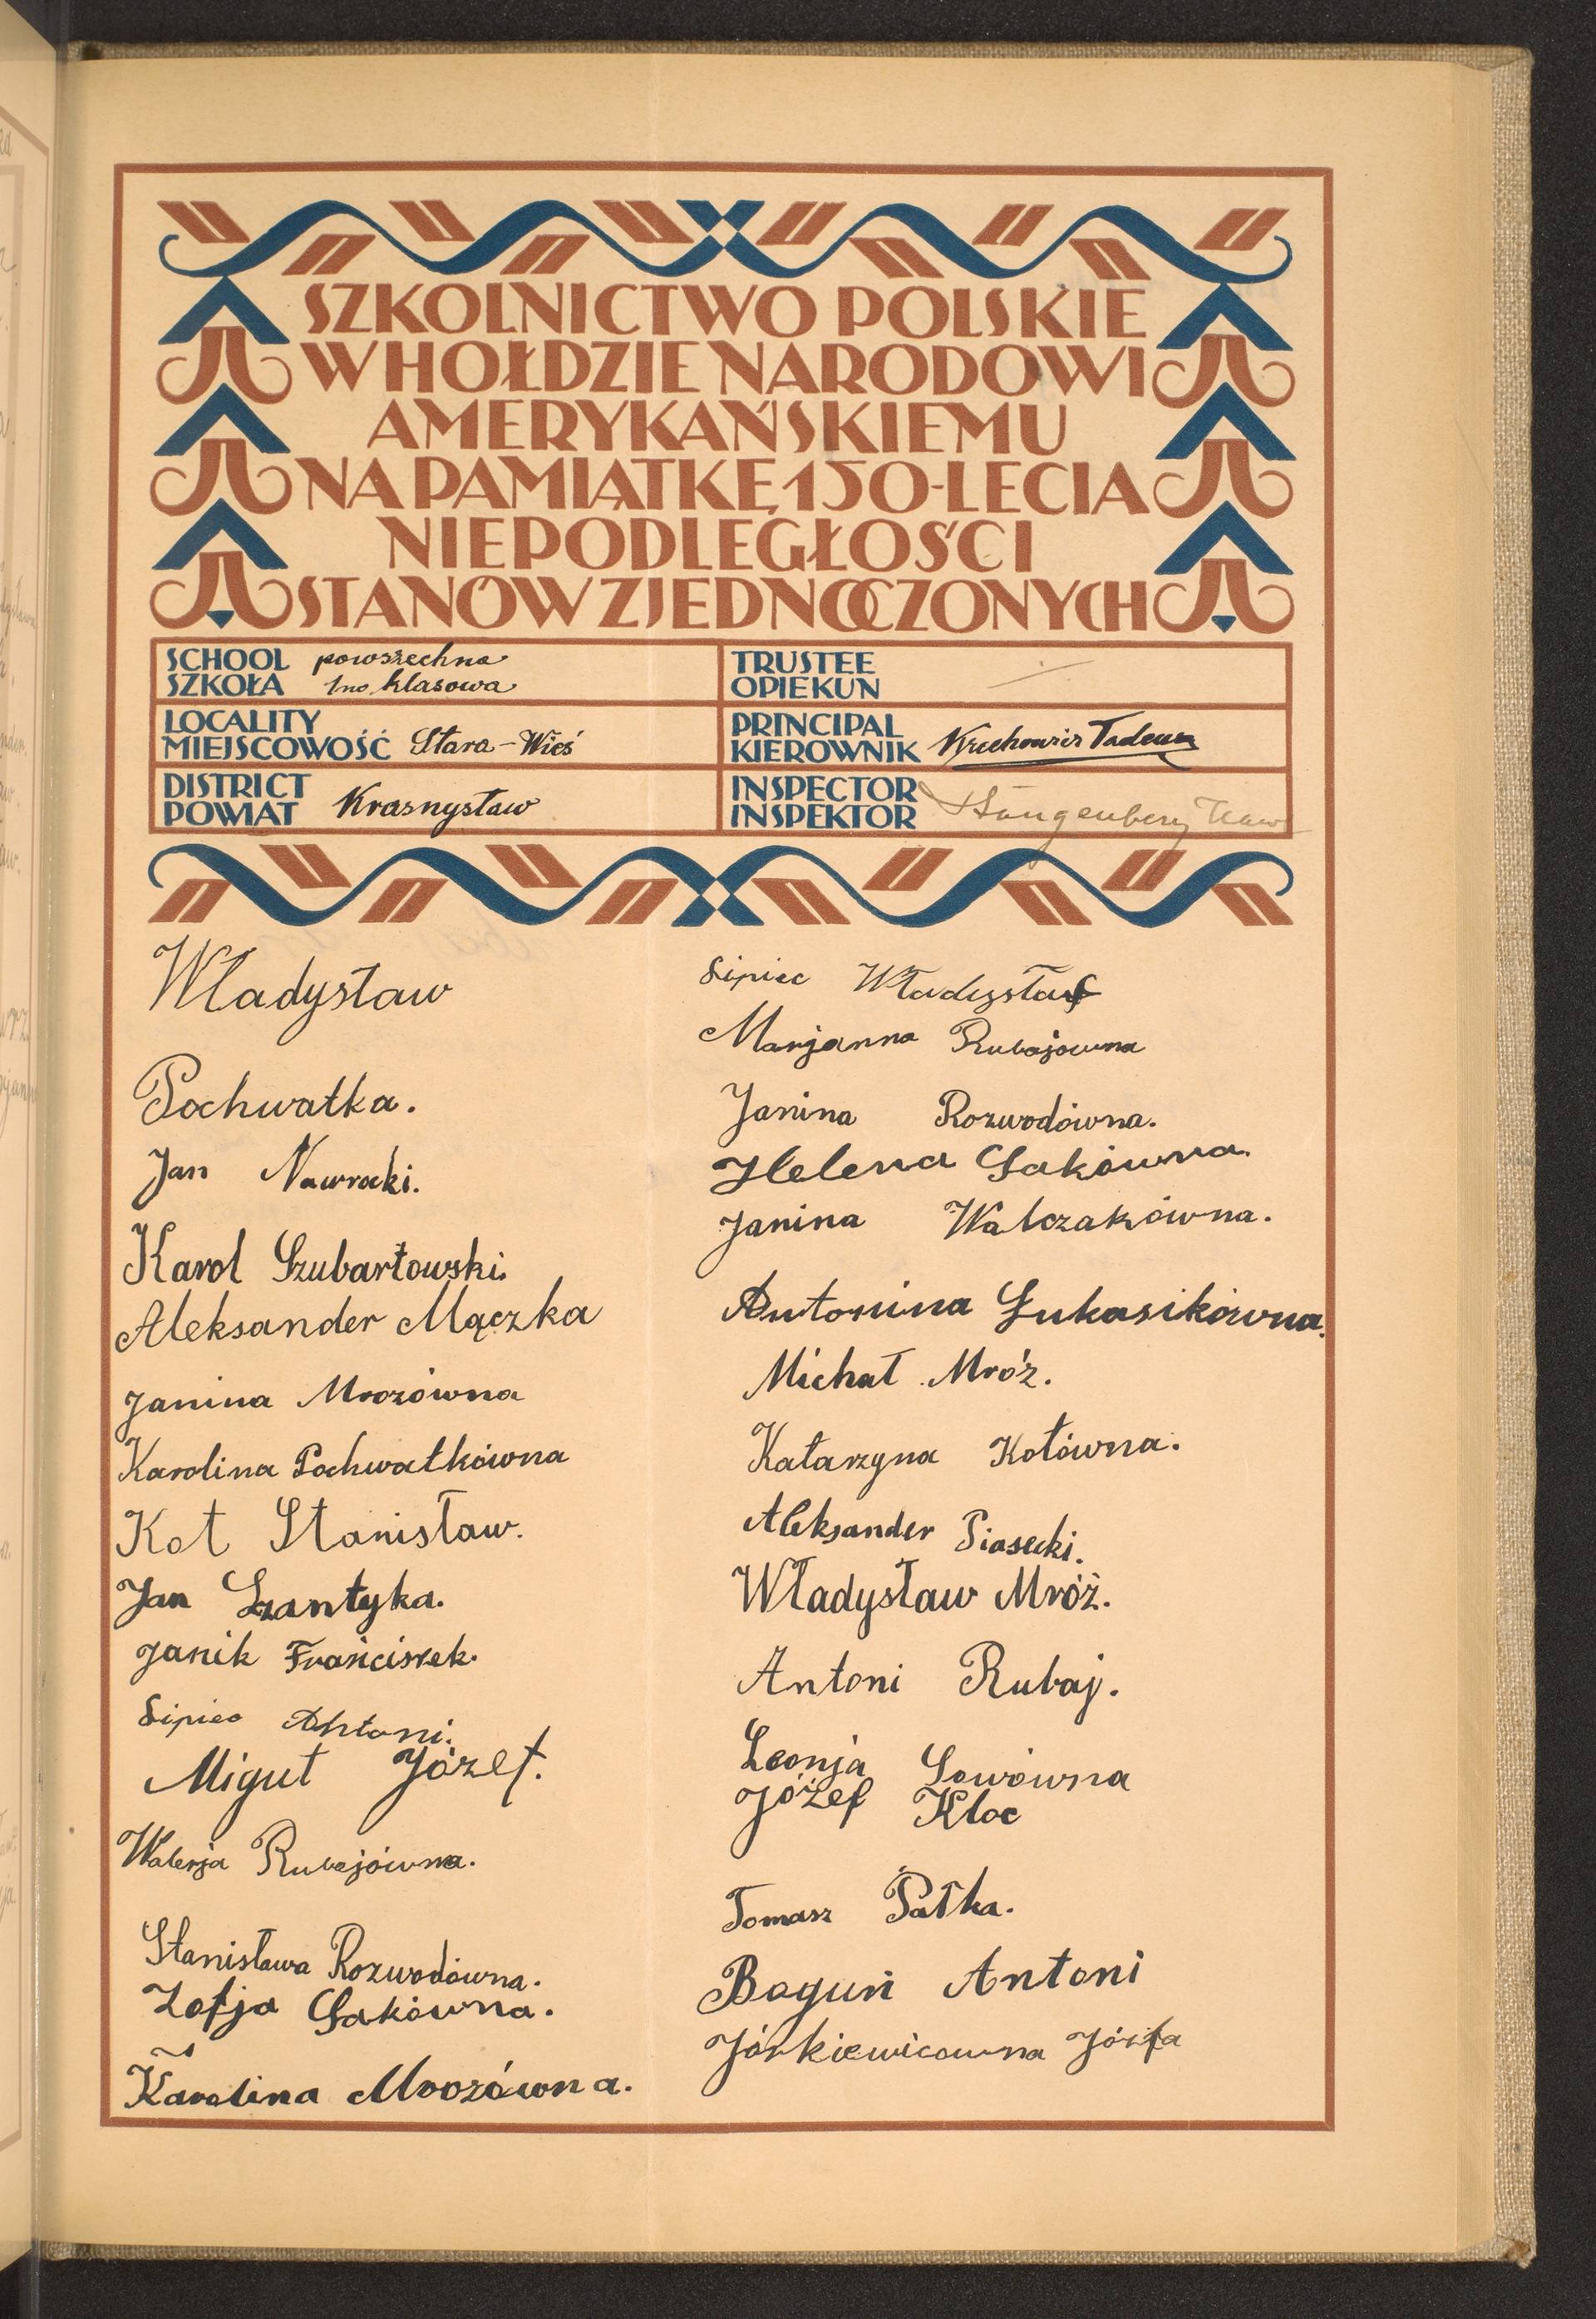 SZKOLNICTWO POLSKIE
W HOŁDZIE NARODOWI
AMERYKAŃSKIEMU
NA PAMIĄTKĘ 150-LECIA
NIEPODLEGŁOŚCI
STANÓW ZJEDNOCZONYCH
SCHOOL powszechna
SZKOŁA 1no klasowa
LOCALITY
MIEJSCOWOŚĆ Stara-Wieś
DISTRICT
POWIAT Krasnystaw
TRUSTEE
OPIEKUN
PRINCIPAL
KIEROWNIK Tadeusz
INSPECTOR
INSPEKTOR
Władysław
Pochwatka.
Jan Nawrocki.
Karol Szubartowski.
Aleksander Mączka
Janina Mrozówna
Karolina Pochwatkówna
Kot Stanisław.
Jan Szantyka.
Janik Franciszek.
Lipiec Antoni.
Migut Józef.
Walerja Rubajówna.
Stanisława Rozwodówna.
Zofja Sakówna.
Karolina Mrozówna.
Lipiec Władysław
Marjanna Rubajówna
Janina Rozwodówna.
Helena Sakówna.
Janina Walczakówna.
Antonina Łukasikówna.
Michał Mróz.
Katarzyna Kotówna.
Aleksander Piasecki.
Władysław Mróz.
Antoni Rubaj.
Leonja Sowówna
Józef Kloc
Tomasz Pałka.
Boguń Antoni
Józefa